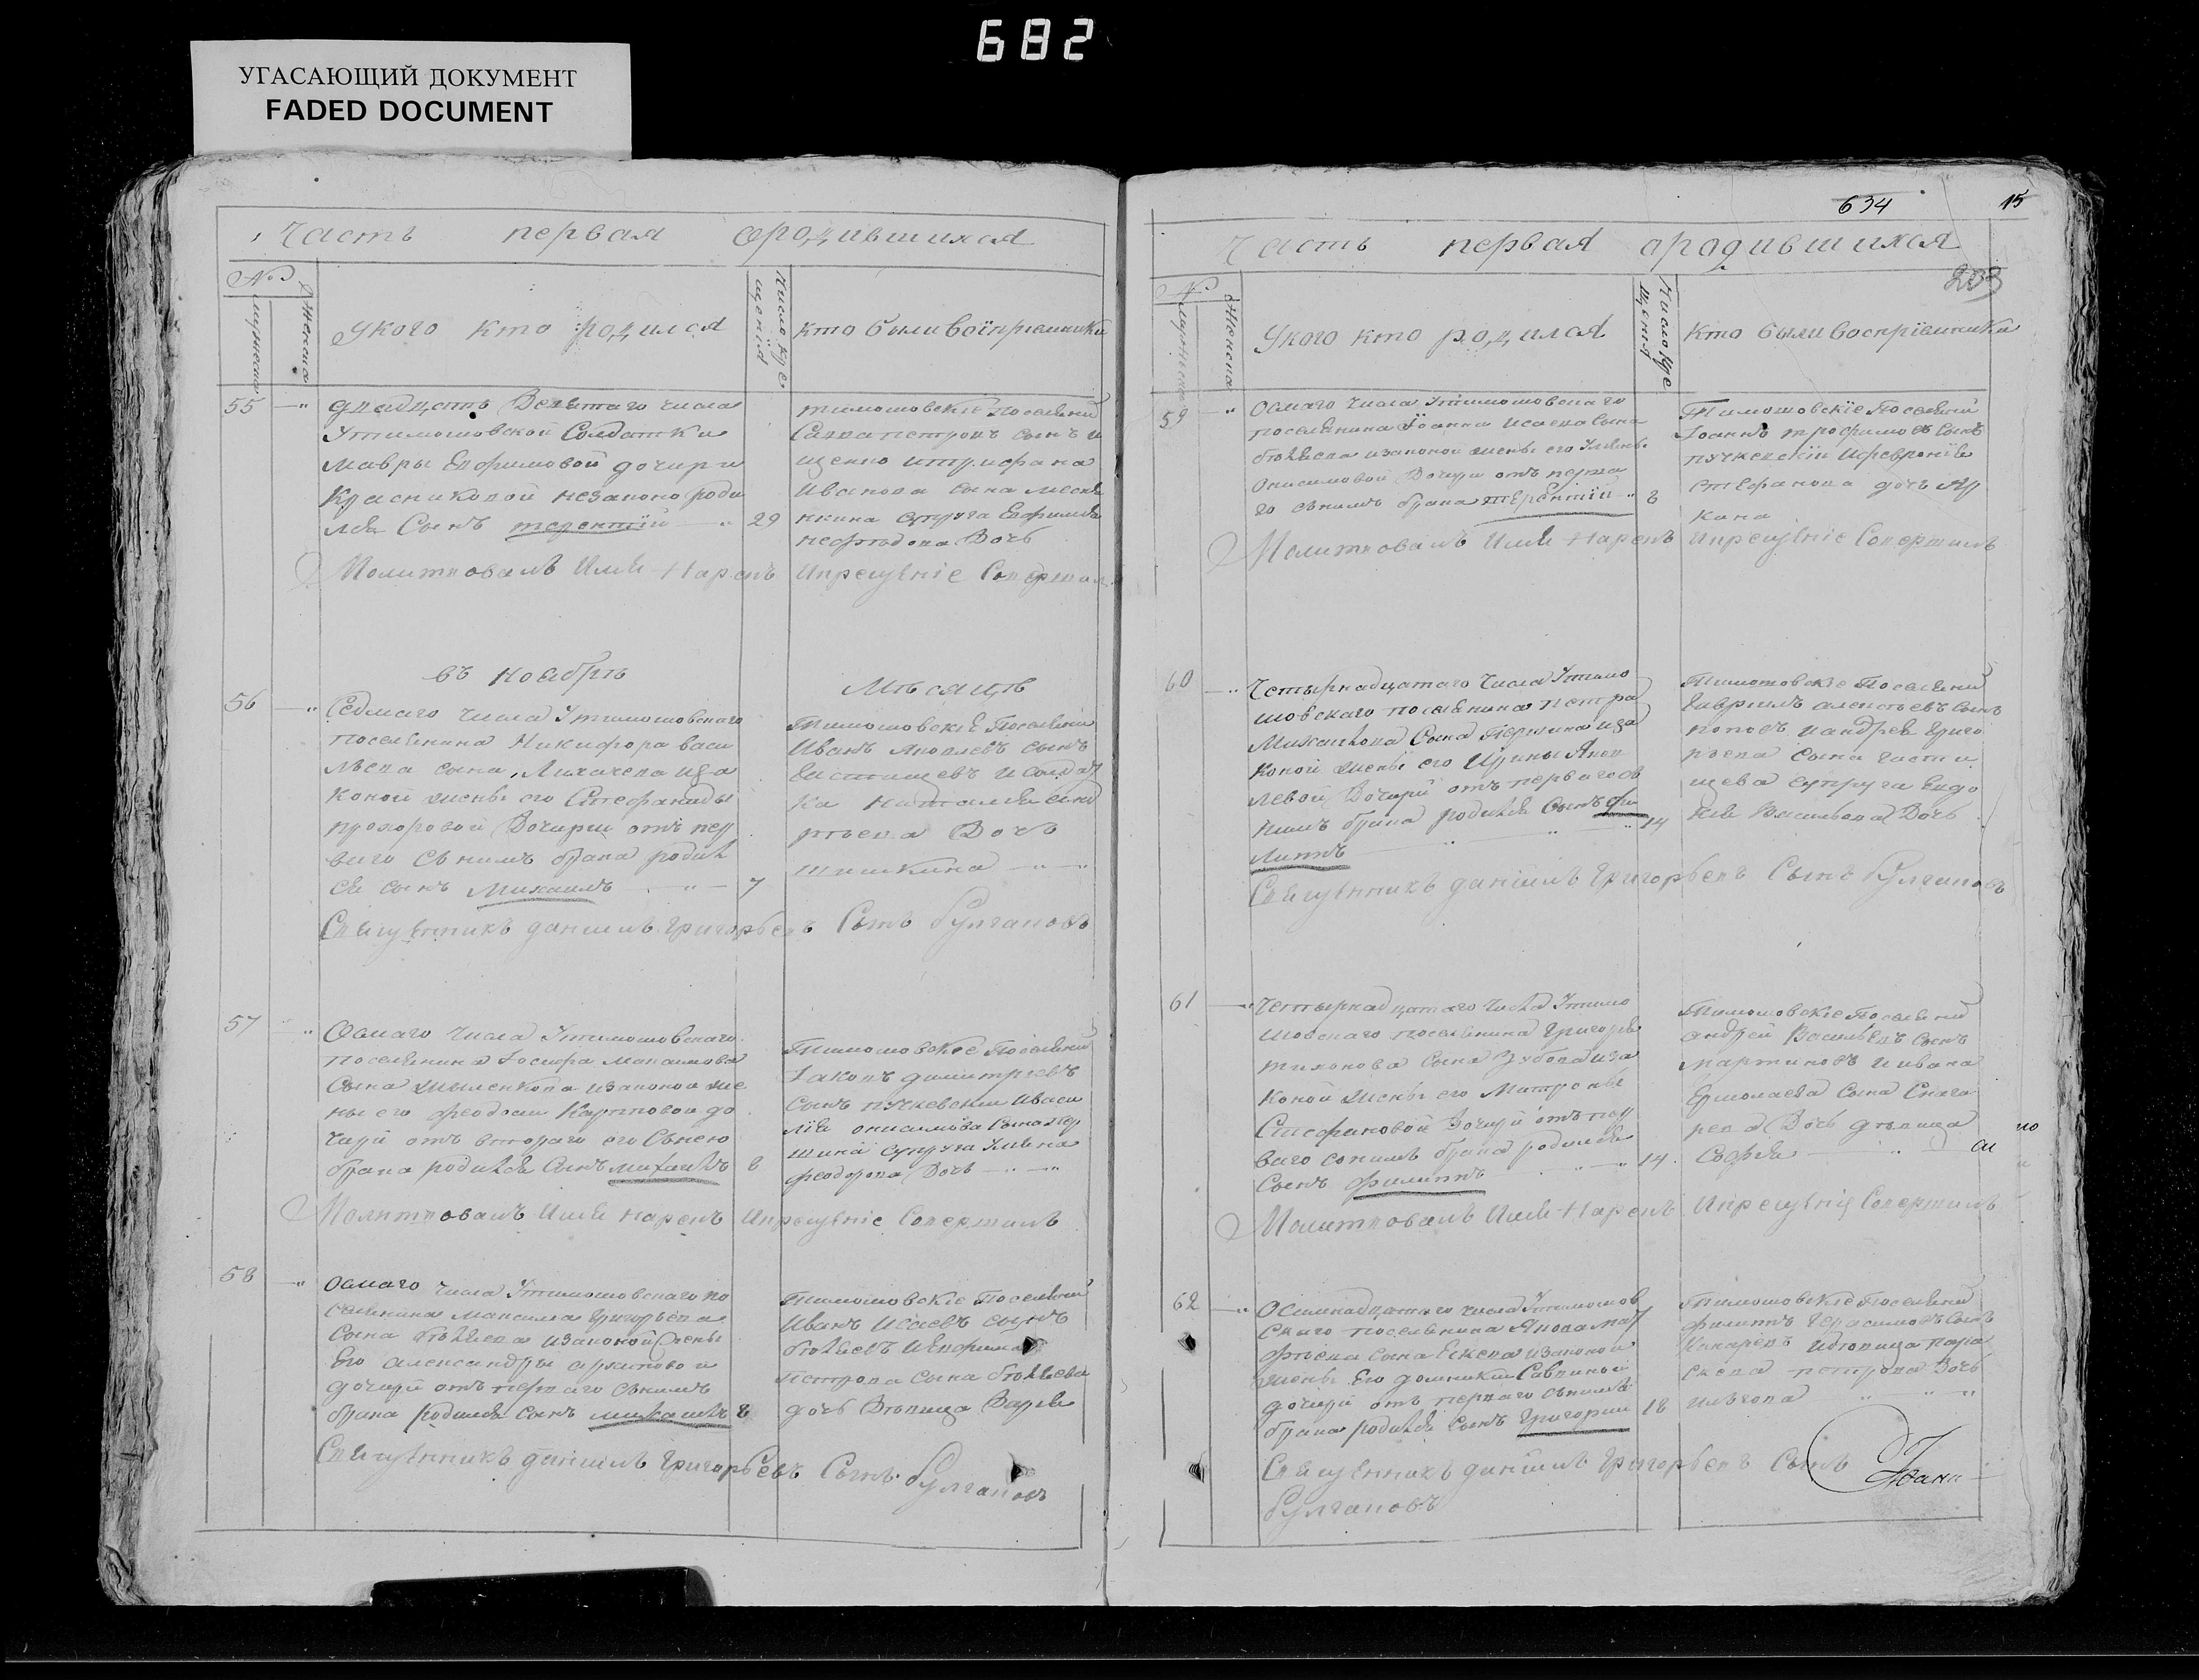 682
УГАСАЮЩИЙ ДОКУМЕНТ
FADED DOCUMENT
Часть первая ородившихся
№
Мужеска
Женска
Укого кто родился
Число кре
щенiя
кто были воспрiемники
55
двадцать Девятаго числа
Утимошовской Солдатки
Мавры Евфимовой дочири
Красниковой незаконо роди
лся Сынъ терентiй 29
тимошовскiе Поселяни
Савва петровъ сынъ
Иванова сына
супруга Евфимия
Дочь
Молитвовалъ Имя Нарекъ Икрещенiе Совершил
въ Ноябръ Мѣсяцѣ
56
Седмаго числа Утимошовскаго
поселянина Никифора васи
льева сына Лихачева иза
коной жены его Стефаниды
прохоровой Дочири отъ пер
ваго сънимъ брака родил
ся сынъ Михаилъ 7
Тимошовскiе Поселяни
Иванъ Яковлевъ сынъ
и солдат
ка Наталия
Дочь
шишкина
Священникъ данiилъ григорьевъ Сынъ булгаковъ
57
Осмаго числа Утимошовскаго
поселянина Иосифа Максимова
сына изаконой же
ны его феодосии Карповой до
чири отъ втораго его Сънею
брака родился Сынъ михаилъ 8
Тимошовскiе Поселяни
Iаковъ димитрiевъ
сынъ пучковскiй иваси
лiя онисимова Сына пер
шина супруга Ульяна
феодорова Дочь
Молитвовалъ Имя нарекъ Икрещенiе Совершилъ
58
Осмаго числа Утимошовскаго по
селянина Максима григорьева
сына бѣляева изаконой жены
Его александры архиповои
дочири отъ перваго сънимъ
брака родился сынъ михаилъ 8
Тимошовскiе Поселяни
Иванъ Исаевъ сынъ
бѣляевъ иЕвфима
петрова сына бѣляева
дочь Дѣвица Варья
Священникъ данiилъ григорьевъ Сынъ булгаковъ
634
15
203
Часть первая ородившихся
№
Мужеска
Женска
Укого кто родился
Число кре
щенiя
Кто были воспрiемники
59
Осмаго числа Утимошовскаго
поселянина Iоанна исаева сына
бѣляева изаконой жены его Ульяны
Онисимовой Дочири отъ перва
го сънимъ брака терентiй 8
Тимошовскiе Поселяни
Iоаннъ трофимовъ сынъ
пучковскiй ифеврониiя
стефанова дочь Ар
кана
Молитвовалъ Имя Нарекъ Икрещенiе Совершилъ
60
Четырнадцатаго Числа Утимо
шовскаго поселянина петра
Михаилова Сына Першина иза
коной жены его Ирины Яков
левой Дочири отъ перваго съ
нимъ брака родился Сынъ фи 14
липпъ
Тимошовскiе Поселяни
гаврiилъ алексѣевъ Сынъ
поповъ иандрея григо
рьева сына части
щева супруга Евдо
кия Васильева Дочь
Священникъ данiилъ григорьевъ Сынъ булгаковъ
61
Четырнадцатаго числа Утимо
шовскаго поселянина григорья
тихонова Сына Зубова иза
коной жены его Матроны
Стефановой Дочири отъ пер
ваго сонимъ брака родился
Сынъ филиппъ 14
Тимошовскiе Поселяни
андрей Васильевъ сынъ
мартиновъ иивана
Ермолаева Сына Снега
рева Дочь дѣвица
Софья
Молитвовалъ Имя Нарекъ Икрещенiе Совершилъ
62
Осмнадцатаго числа Утимошов
скаго поселянина Якова мат
фѣева сына Ескева изаконой
жены Его домникии Савиной
дочири отъ перваго сънимъ
брака родился сынъ григорiи 18
Тимошовскiе Поселяни
филиппъ герасимовъ Сынъ
Кокаревъ ивдовица пара
скева петрова Дочь
Священникъ данiилъ григорьевъ Сынъ
булгаковъ